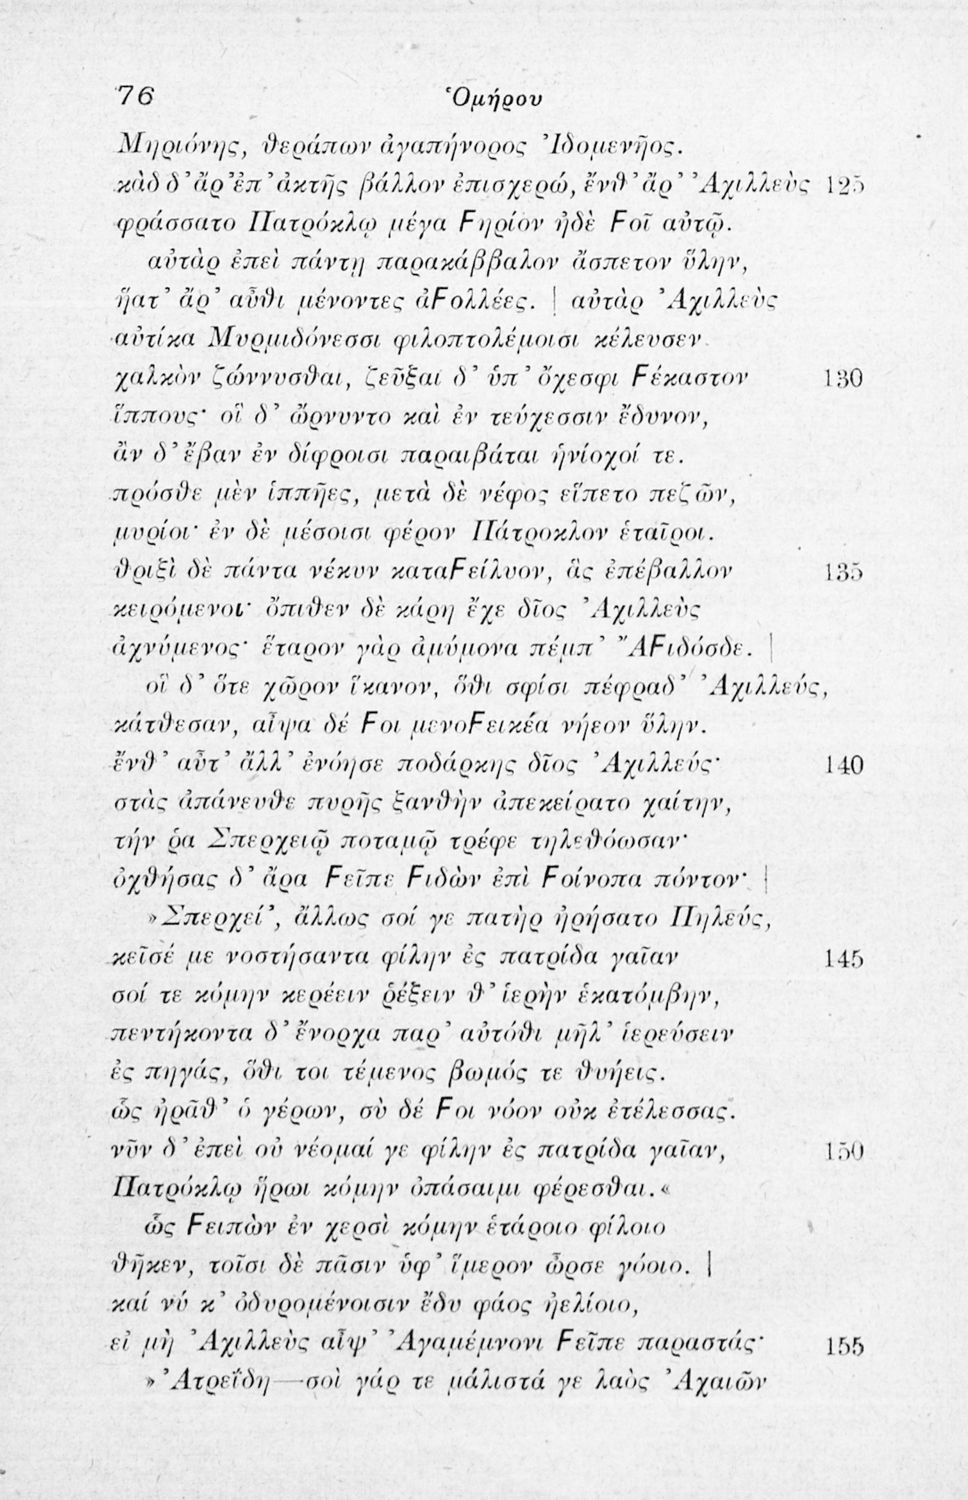 76 Ὁμήρου
Μηριόνης, θεράπων ἀγαπήνορος Ἰδομενῆος.
κὰδ δ’ ἄρ’ ἐπ’ ἀκτῆς βάλλον ἐπισχερώ, ἔνθ’ ἄρ’ Ἀχιλλεὺς 125
φράσσατο Πατρόκλῳ μέγα Ϝηρίον ἠδὲ Ϝοῖ αὐτῷ.
αὐτὰρ ἐπεὶ πάντῃ παρακάββαλον ἄσπετον ὕλην,
ἥατ’ ἄρ’ αὖθι μένοντες ἀϜολλέες. | αὐτὰρ Ἀχιλλεὺς
αὐτίκα Μυρμιδόνεσσι φιλοπτολέμοισι κέλευσεν
χαλκὸν ζώννυσθαι, ζεῦξαι δ’ ὑπ’ ὄχεσφι Ϝέκαστον 130
ἵππους· οἳ δ’ ὤρνυντο καὶ ἐν τεύχεσσιν ἔδυνον,
ἂν δ’ ἔβαν ἐν δίφροισι παραιβάται ἡνίοχοί τε.
πρόσθε μὲν ἱππῆες, μετὰ δὲ νέφος εἵπετο πεζῶν,
μυρίοι· ἐν δὲ μέσοισι φέρον Πάτροκλον ἑταῖροι.
θριξὶ δὲ πάντα νέκυν καταϜείλυον, ἃς ἐπέβαλλον 135
κειρόμενοι· ὄπιθεν δὲ κάρη ἔχε δῖος Ἀχιλλεὺς
ἀχνύμενος· ἕταρον γὰρ ἀμύμονα πέμπ’ ἌϜιδόσδε. |
οἳ δ’ ὅτε χῶρον ἵκανον, ὅθι σφίσι πέφραδ’ Ἀχιλλεύς,
κάτθεσαν, αἶψα δέ Ϝοι μενοϜεικέα νήεον ὕλην.
ἔνθ’ αὖτ’ ἄλλ’ ἐνόησε ποδάρκης δῖος Ἀχιλλεύς· 140
στὰς ἀπάνευθε πυρῆς ξανθὴν ἀπεκείρατο χαίτην,
τήν ῥα Σπερχειῷ ποταμῷ τρέφε τηλεθόωσαν·
ὀχθήσας δ’ ἄρα Ϝεῖπε Ϝιδὼν ἐπὶ Ϝοίνοπα πόντον· |
»Σπερχεί’, ἄλλως σοί γε πατὴρ ἠρήσατο Πηλεύς,
κεῖσέ με νοστήσαντα φίλην ἐς πατρίδα γαῖαν 145
σοί τε κόμην κερέειν ῥέξειν θ’ ἱερὴν ἑκατόμβην,
πεντήκοντα δ’ ἔνορχα παρ’ αὐτόθι μῆλ’ ἱερεύσειν
ἐς πηγάς, ὅθι τοι τέμενος βωμός τε θυήεις.
ὣς ἠρᾶθ’ ὁ γέρων, σὺ δέ Ϝοι νόον οὐκ ἐτέλεσσας.
νῦν δ’ ἐπεὶ οὐ νέομαί γε φίλην ἐς πατρίδα γαῖαν, 150
Πατρόκλῳ ἥρωι κόμην ὀπάσαιμι φέρεσθαι.«
ὣς Ϝειπὼν ἐν χερσὶ κόμην ἑτάροιο φίλοιο
θῆκεν, τοῖσι δὲ πᾶσιν ὑφ’ ἵμερον ὦρσε γόοιο. |
καί νύ κ’ ὀδυρομένοισιν ἔδυ φάος ἠελίοιο,
εἰ μὴ Ἀχιλλεὺς αἶψ’ Ἀγαμέμνονι Ϝεῖπε παραστάς· 155
»Ἀτρεΐδη—σοὶ γάρ τε μάλιστά γε λαὸς Ἀχαιῶν